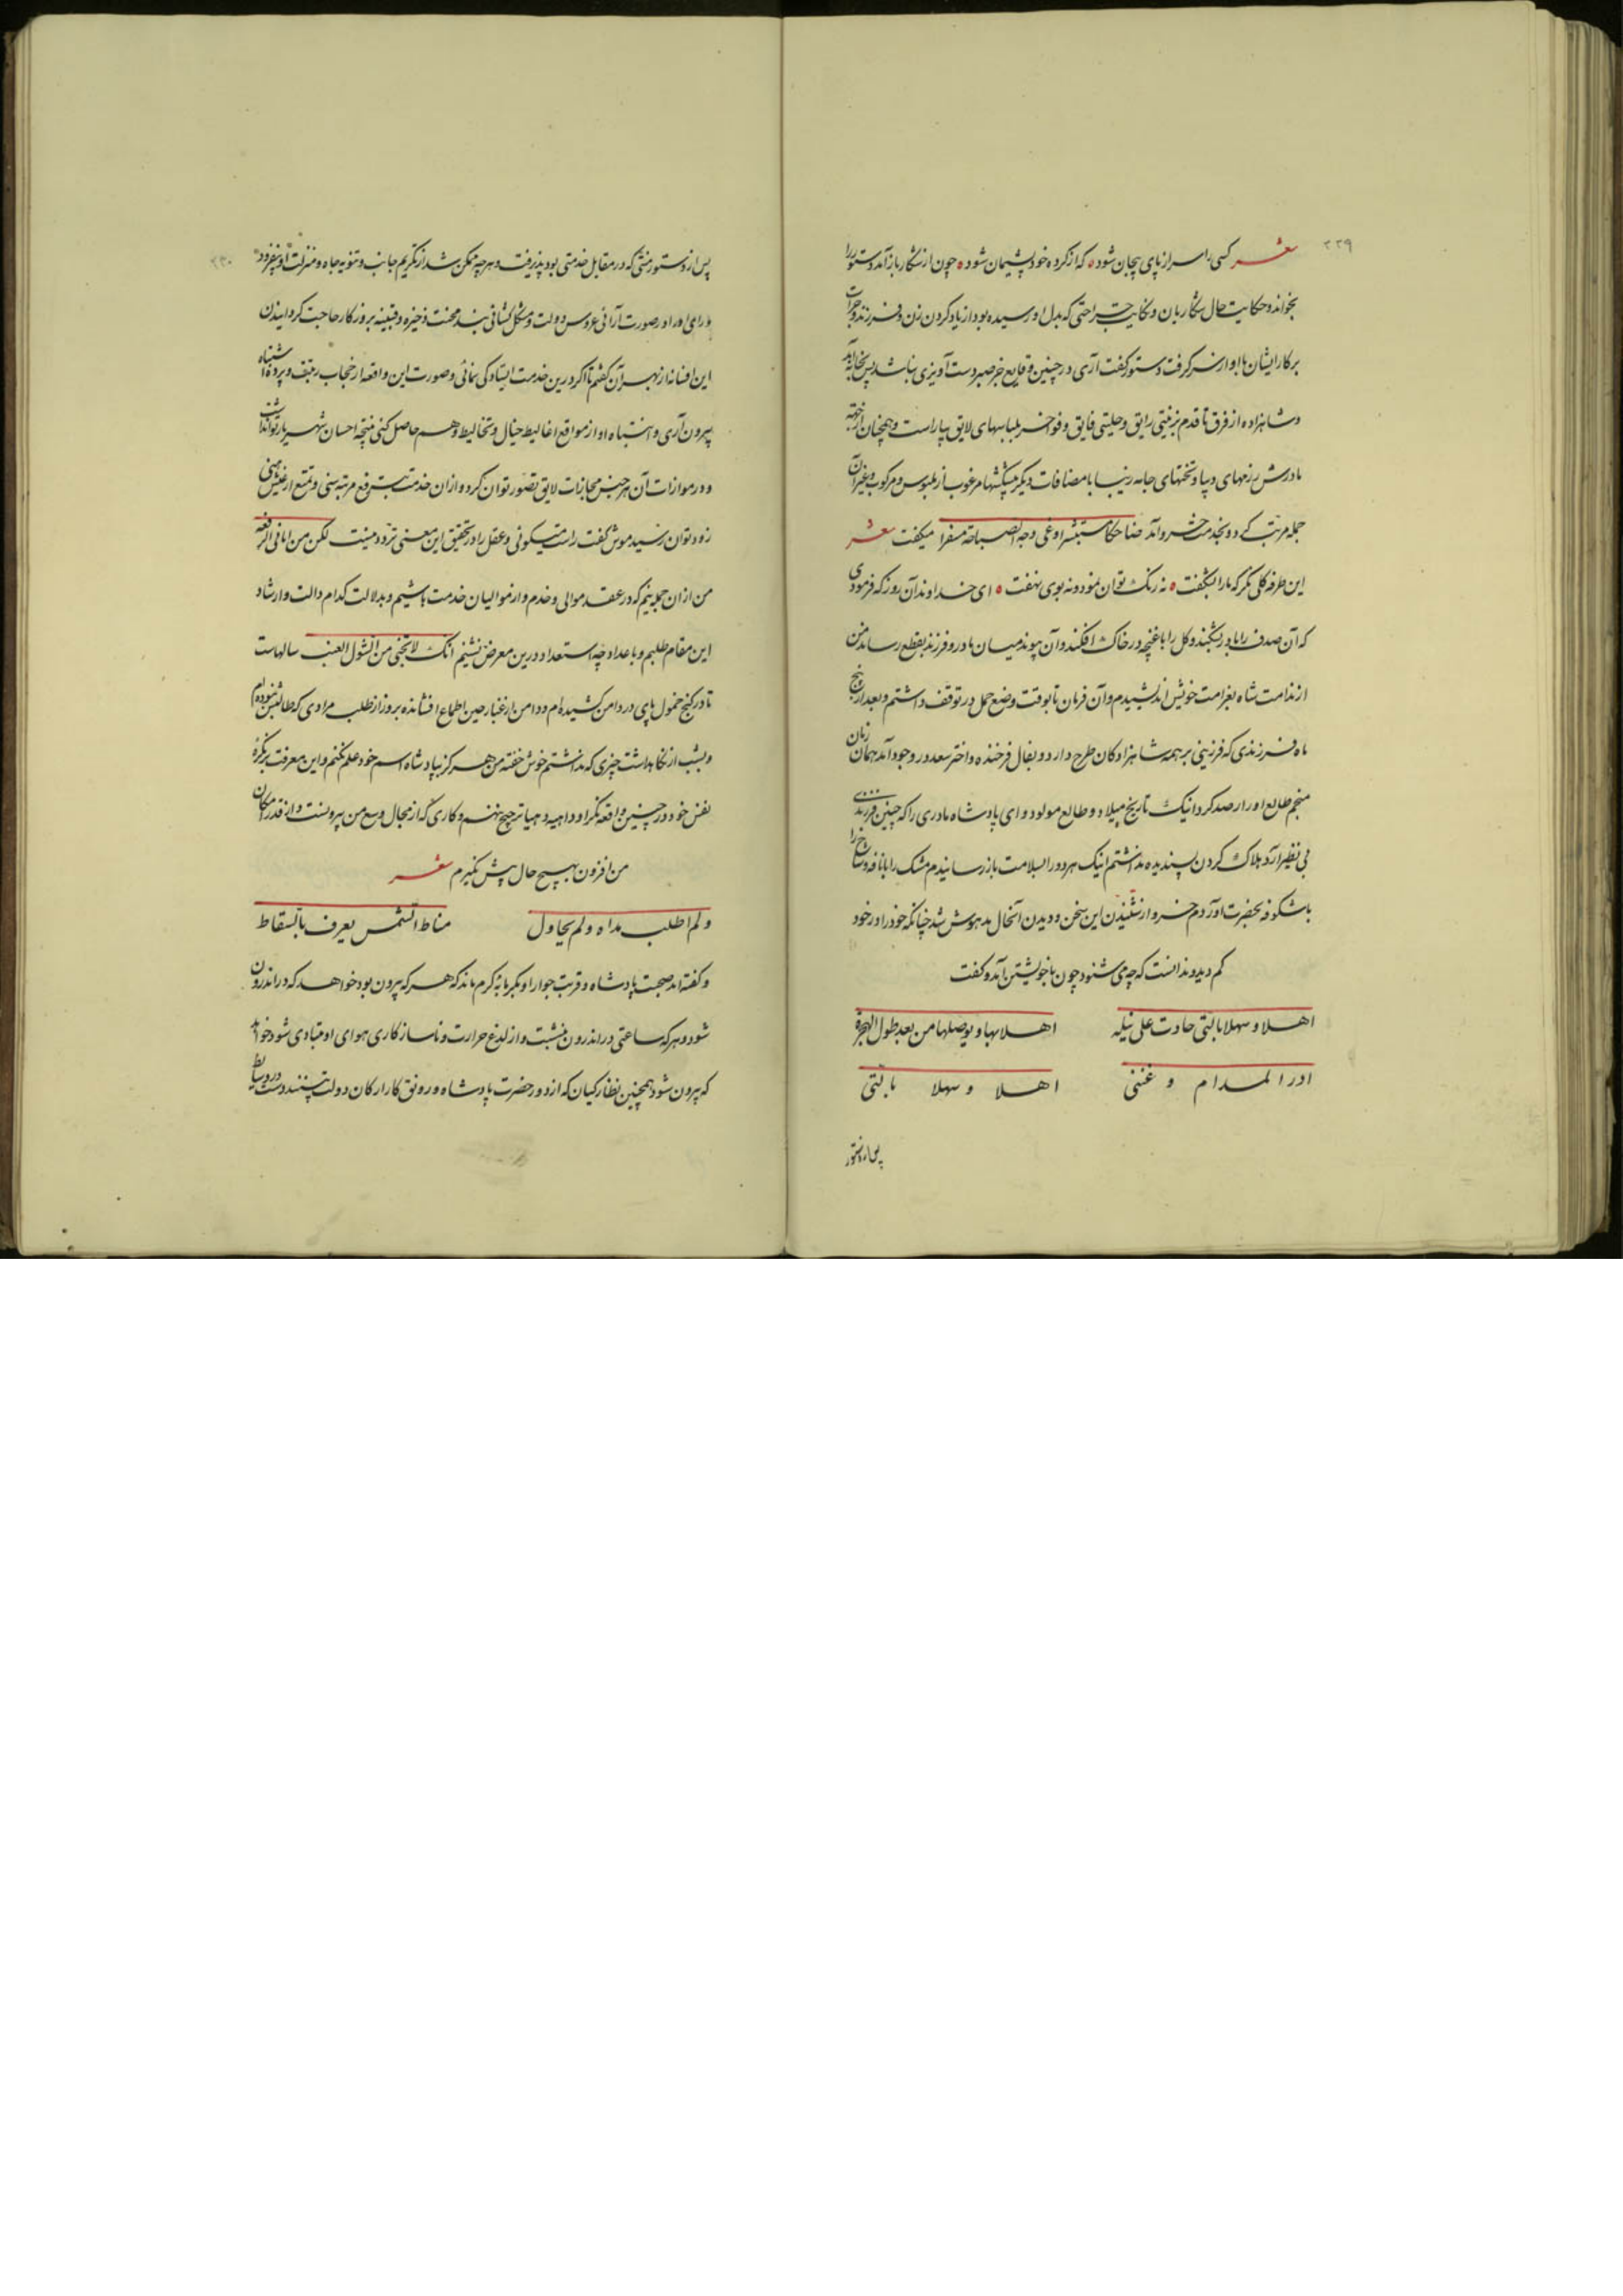 ۲۲۹
شعر کسی را سر از پای پیچان شود ه که از کرده خود پشیمان شود ه چون از شکار باز آمد دستور را
بخواند و حکایت حال شکاربان و نکایت جراحتی که بدل او رسیده بود از یاد کردن زن و فرزند و جرات
بر کار ایشان با او از سر گرفت دستور گفت آری در چنین وقایع جز صبر دست آویزی نباشد پس بخانه آمد
و شاهزاده از فرق تا قدم بزینتی رایق و حلیتی فایق و فواخر لباسهای لایق بیاراست و همچنان از جهة
مادرش رزمهای دیبا و تختهای جامه زیبا با مضافات دیگر پیشکشها مرغوب از ملبوس و مرکوب و غیر آن
جمله مرتب کرد و بخدمت خسرو آمد ضاحکا مستبشرا و عن وجه الصباحة مسفرا میگفت شعر
این طرفه گلی نگر که ما را بشگفت ه نه رنگ توان نمود و نه بوی نهفت ه ای خداوند آن روز که فرمودی
که آن صدف را با در بشکنند و گل را با غنچه در خاک افکنند و آن پیوند میان مادر و فرزند بقطع رسانند من
از ندامت شاه بغرامت خویش اندیشیدم و آن فرمان تا بوقت وضع حمل در توقف داشتم و بعد از پنج
ماه فرزندی که فرزینی بر همه شاهزادگان طرح دارد و بفال فرخنده و اختر سعد در وجود آمد همان زمان
منجم طالع او را رصد کرد اینک تاریخ میلاد و طالع مولود و ای پادشاه مادری را که چنین فرزندی
بی نظیر آرد هلاک کردن پسندیده نداشتم اینک هر دو را بسلامت باز رسانیدم مشک را با نافه و شاخ را
با شکوفه بحضرت آوردم خسرو از شنیدن این سخن و دیدن آنحال مدهوش شد چنانکه خود را در خود
گم دید و ندانست که چه می شنود چون با خویشتن آمد و گفت
اهلا و سهلا بالتی جادت علی نیله    اهلا بها و بوصلها من بعد طول الهجرة
ادر المدام و غننی    اهلا و سهلا بالتی
پس از دستور
۲۳۰
پس از دستور منتی که در مقابل خدمتی بود پذیرفت و هر چه ممکن شد از تکریم جانب و تنویه جاه و منزلت او بیفزود
و رای او را در صورت آرائی عروس دولت و مشکل گشائی بند محنت ذخیره و قنینه بروز کار حاجت گردانیدن
این افسانه از بهر آن گفتم تا اگر درین خدمت ایستادگی نمائی و صورت این واقعه از حجاب ریب و پرده اشتباه
بیرون آری و انتباه او از مواقع اغالیط خیال و تخالیط وهم حاصل کنی نتیجه احسان شهریار تواند شد
و در موازات آن هر جنس مجازات لایق تصور توان کرد و از ان خدمت برفع مرتبه سنی و تمتع از عیش هنی
زود توان رسید موش گفت راست میگوئی و عقل را در تحقیق این معنی تردد نیست لکن من انا فی الرفعة
من از ان جمله نیم که در عقد موالی و خدم و از موالیان خدمت باشیم و بدلالت کدام دالت و ارشاد
این مقام طلبم و باعداد چه استعداد درین معرض نشینم انک لا تجنی من الشوک العنب سالهاست
تا در کنج خمول پای در دامن کشیده‌ام و دامن از غبار چنین اطماع افشانده بروز از طلب مرادی که طالبش نبوده‌ام
و بشب از نگاهداشت چیزی که نداشتم خوش خفته من هرگز بپادشاه اسم خود علم نکنم و این معرفت بر نکره
نفس خود در چنین واقعه نکرا و داهیه دهیا ترجیح ننهم و کاری که از مجال وسع من بیرونست و از قدر امکان
من افزون بهیچ حال پیش نگیرم شعر
ولم اطلب مداه ولم یحاول    مناط الشمس یعرف بالسقاط
و گفته اند صحبت پادشاه و قربت جوار او بگرمابه گرم ماند که هر که بیرون بود خواهد که در اندرون
شود و هر که ساعتی در اندرون بنشست و از لدغ حرارت و ناسازکاری هوای او متاذی شود خواهد
که بیرون شود همچنین نظارگیان که از دور حضرت پادشاه و رونق کار ارکان دولت بینند دست در وسایط